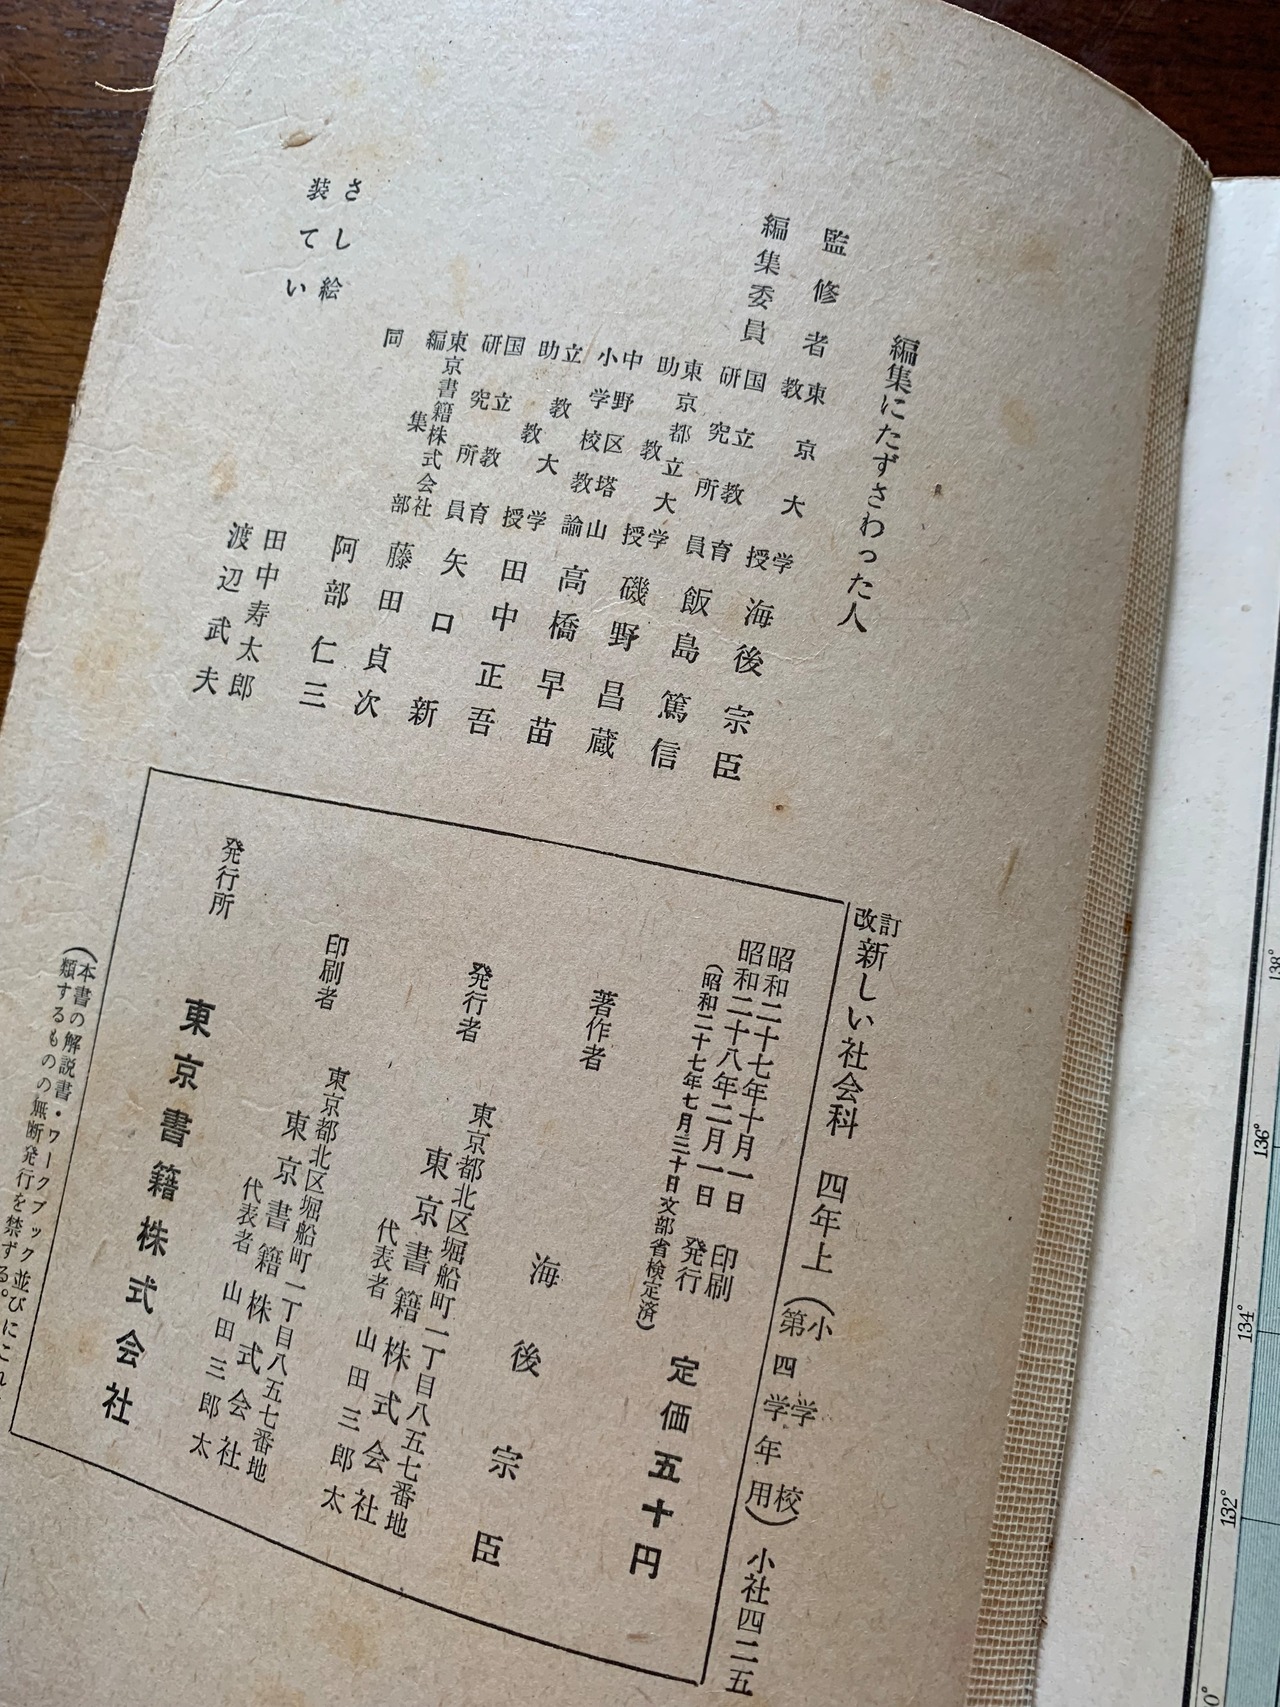 編集にたずさわった人
監修者 東京大学教授 海後宗臣
編集委員 国立教育研究所員 飯島篤信
東京都立大学助教授 磯野昌蔵
中野区塔山小学校教諭 高橋早苗
立教大学助教授 田中正吾
国立教育研究所員 矢口新
東京書籍株式会社編集部 藤田貞次
同 阿部仁三
さし絵 田中寿太郎
装てい 渡辺武夫
改訂 新しい社会科 四年上 (小学校第四学年用) 小社四二五
昭和二十七年十月一日 印刷
昭和二十八年二月一日 発行
(昭和二十七年七月三十日文部省検定済)
定価五十円
著作者 海後宗臣
発行者 東京都北区堀船町一丁目八五七番地
東京書籍株式会社
代表者 山田三郎太
印刷者 東京都北区堀船町一丁目八五七番地
東京書籍株式会社
代表者 山田三郎太
発行所 東京書籍株式会社
(本書の解説書・ワークブック並びにこれ
類するものの無断発行を禁ずる。
138°
136°
134°
132°